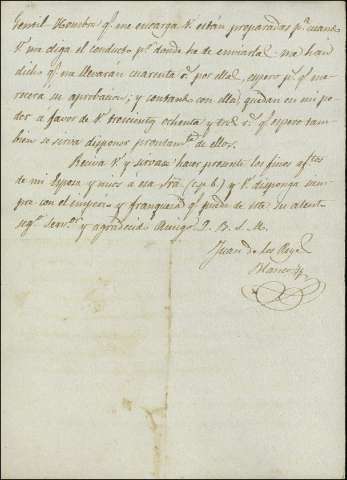 Gentil Hombre q.e me encarga V. están preparadas p.a cuando
V. me diga el conducto p.r donde he de enviarlas: me han
dicho q.e me llevarán cuarenta r.s por ellas, espero p.s q.e me
recerá su aprobacion; y contando con ella, quedan en mi po
der a favor de V. trescientos ochenta y tres r.s q.e espero tam
bien se sirva disponer prontam.te de ellos.
Reciva V. y sirvase hacer presente los finos aftos
de mi Esposa y mios á esa Sra. (c.p.b.) y V. disponga siem
pre con el imperio y franqueza q.e puede de este su atento
seg.o serv.or y agradecido Amigo Q. B. S. M.
Juan de los Reyes
Blanco